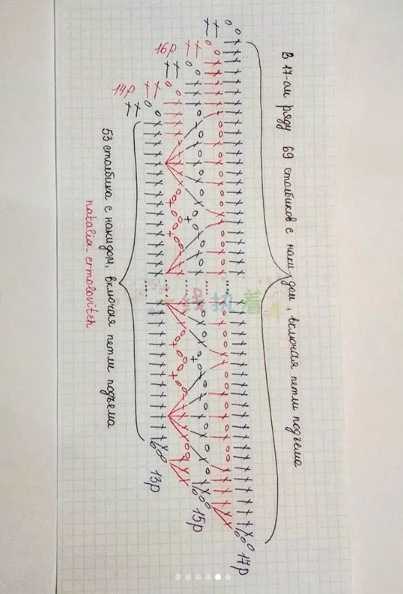 В 17-ом ряду 69 столбиков с накидом, включая петли подъема
16р
14р
53 столбика с накидом, включая петли подъема
natalia_ermolovitch
13р
15р
17р